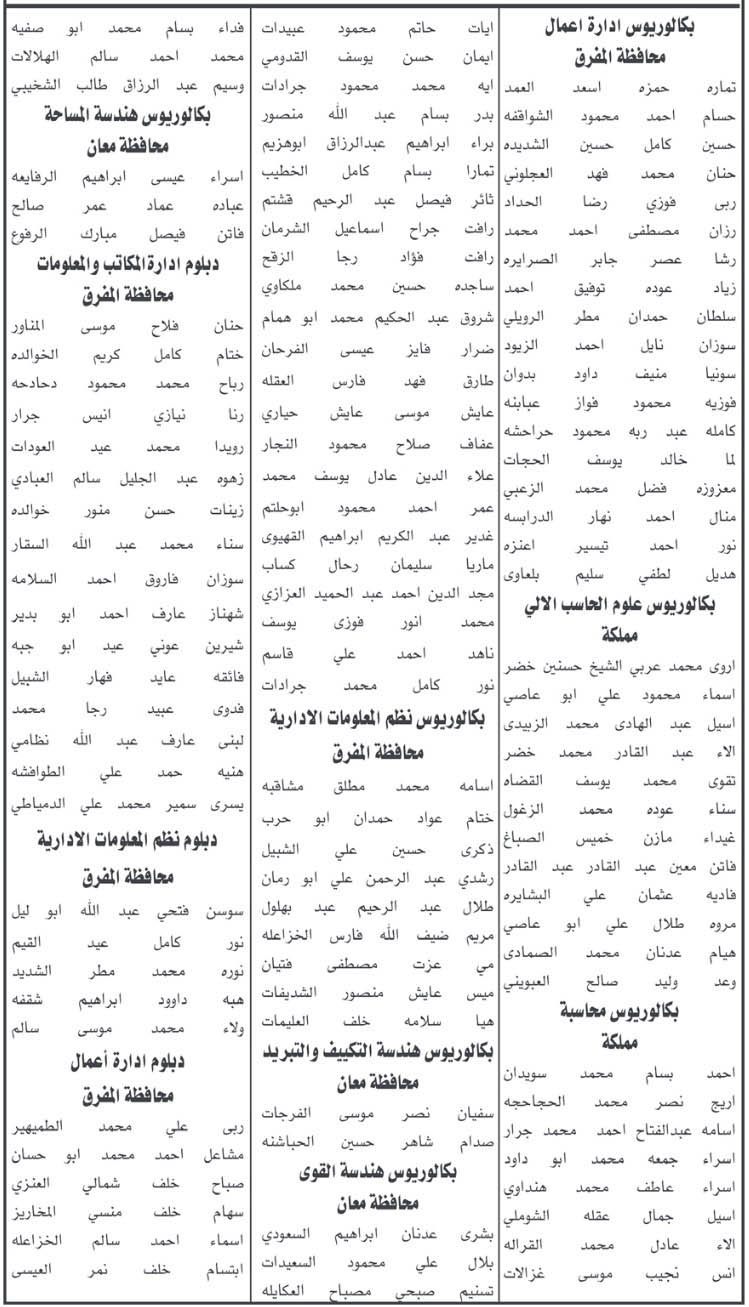 بكالوريوس ادارة اعمال
محافظة المفرق
تماره حمزه اسعد العمد
حسام احمد محمود الشواقفه
حسين كامل حسين الشديده
حنان محمد فهد العجلوني
ربى فوزي رضا الحداد
رزان مصطفى احمد محمد
رشا عصر جابر الصرايره
زياد عوده توفيق احمد
سلطان حمدان مطر الرويلي
سوزان نايل احمد الزيود
سونيا منيف داود بدوان
فوزيه محمود فواز عبابنه
كامله عبد ربه محمود حراحشه
لما خالد يوسف الحجات
معزوزه فضل محمد الزعبي
منال احمد نهار الدرابسه
نور احمد تيسير اعنزه
هديل لطفي سليم بلعاوى
بكالوريوس علوم الحاسب الالي
مملكة
اروى محمد عربي الشيخ حسنين خضر
اسماء محمود علي ابو عاصي
اسيل عبد الهادى محمد الزبيدى
الاء عبد القادر محمد خضر
تقوى محمد يوسف القضاه
سناء عوده محمد الزغول
غيداء مازن خميس الصباغ
فاتن معين عبد القادر عبد القادر
فاديه عثمان علي البشايره
مروه طلال علي ابو عاصي
هيام عدنان محمد الصمادى
وعد وليد صالح العبويني
بكالوريوس محاسبة
مملكة
احمد بسام محمد سويدان
اريج نصر محمد الحجاحجه
اسامه عبدالفتاح احمد محمد جرار
اسراء جمعه محمد ابو داود
اسراء عاطف محمد هنداوي
اسيل جمال عقله الشوملي
الاء عادل محمد القراله
انس نجيب موسى غزالات
ايات حاتم محمود عبيدات
ايمان حسن يوسف القدومي
ايه محمد محمود جرادات
بدر بسام عبد الله منصور
براء ابراهيم عبدالرزاق ابوهزيم
تمارا بسام كامل الخطيب
ثائر فيصل عبد الرحيم قشتم
رافت جراح اسماعيل الشرمان
رافت فؤاد رجا الزقح
ساجده حسين محمد ملكاوي
شروق عبد الحكيم محمد ابو همام
ضرار فايز عيسى الفرحان
طارق فهد فارس العقله
عايش موسى عايش حياري
عفاف صلاح محمود النجار
علاء الدين عادل يوسف محمد
عمر احمد محمود ابوحلتم
غدير عبد الكريم ابراهيم القهيوى
ماريا سليمان رحال كساب
مجد الدين احمد عبد الحميد العزازي
محمد انور فوزى يوسف
ناهد احمد علي قاسم
نور كامل محمد جرادات
بكالوريوس نظم المعلومات الادارية
محافظة المفرق
اسامه محمد مطلق مشاقبه
ختام عواد حمدان ابو حرب
ذكرى حسين علي الشبيل
رشدي عبد الرحمن علي ابو رمان
طلال عبد الرحيم عبد بهلول
مريم ضيف الله فارس الخزاعله
مي عزت مصطفى فتيان
ميس عايش منصور الشديفات
هيا سلامه خلف العليمات
بكالوريوس هندسة التكييف والتبريد
محافظة معان
سفيان نصر موسى الفرجات
صدام شاهر حسين الحباشنه
بكالوريوس هندسة القوى
محافظة معان
بشرى عدنان ابراهيم السعودي
بلال علي محمود السعيدات
تسنيم صبحي مصباح العكايله
فداء بسام محمد ابو صفيه
محمد احمد سالم الهلالات
وسيم عبد الرزاق طالب الشخيبي
بكالوريوس هندسة المساحة
محافظة معان
اسراء عيسى ابراهيم الرفايعه
عباده عماد عمر صالح
فاتن فيصل مبارك الرفوع
دبلوم ادارة المكاتب والمعلومات
محافظة المفرق
حنان فلاح موسى المناور
ختام كامل كريم الخوالده
رباح محمد محمود دحادحه
رنا نيازي انيس جرار
رويدا محمد عيد العودات
زهوه عبد الجليل سالم العبادي
زينات حسن منور خوالده
سناء محمد عبد الله السقار
سوزان فاروق احمد السلامه
شهناز عارف احمد ابو بدير
شيرين عوني عيد ابو جبه
فائقه عايد فهار الشبيل
فدوى عبيد رجا محمد
لبنى عارف عبد الله نظامي
هنيه حمد علي الطوافشه
يسرى سمير محمد علي الدمياطي
دبلوم نظم المعلومات الادارية
محافظة المفرق
سوسن فتحي عبد الله ابو ليل
نور كامل عيد القيم
نوره محمد مطر الشديد
هبه داوود ابراهيم شقفه
ولاء محمد موسى سالم
دبلوم ادارة أعمال
محافظة المفرق
ربى علي محمد الطميهير
مشاعل احمد محمد ابو حسان
صباح خلف شمالي العنزي
سهام خلف منسي المخاريز
اسماء احمد سالم الخزاعله
ابتسام خلف نمر العيسى